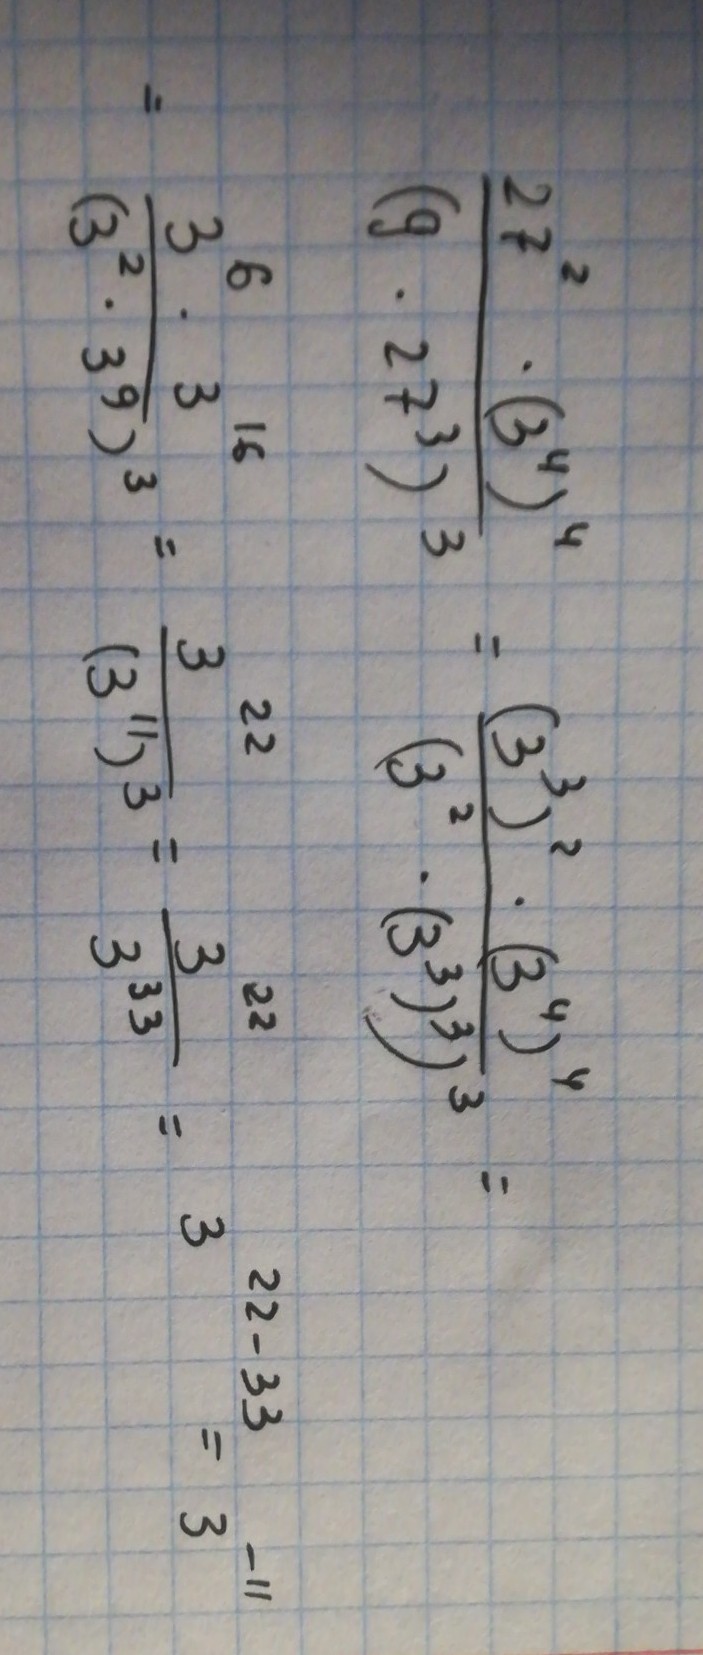 27² · (3⁴)⁴ / (9 · 27³)³ = (3³)² · (3⁴)⁴ / (3² · (3³)³)³ =
= 3⁶ · 3¹⁶ / (3² · 3⁹)³ = 3²² / (3¹¹)³ = 3²² / 3³³ = 3²²⁻³³ = 3⁻¹¹